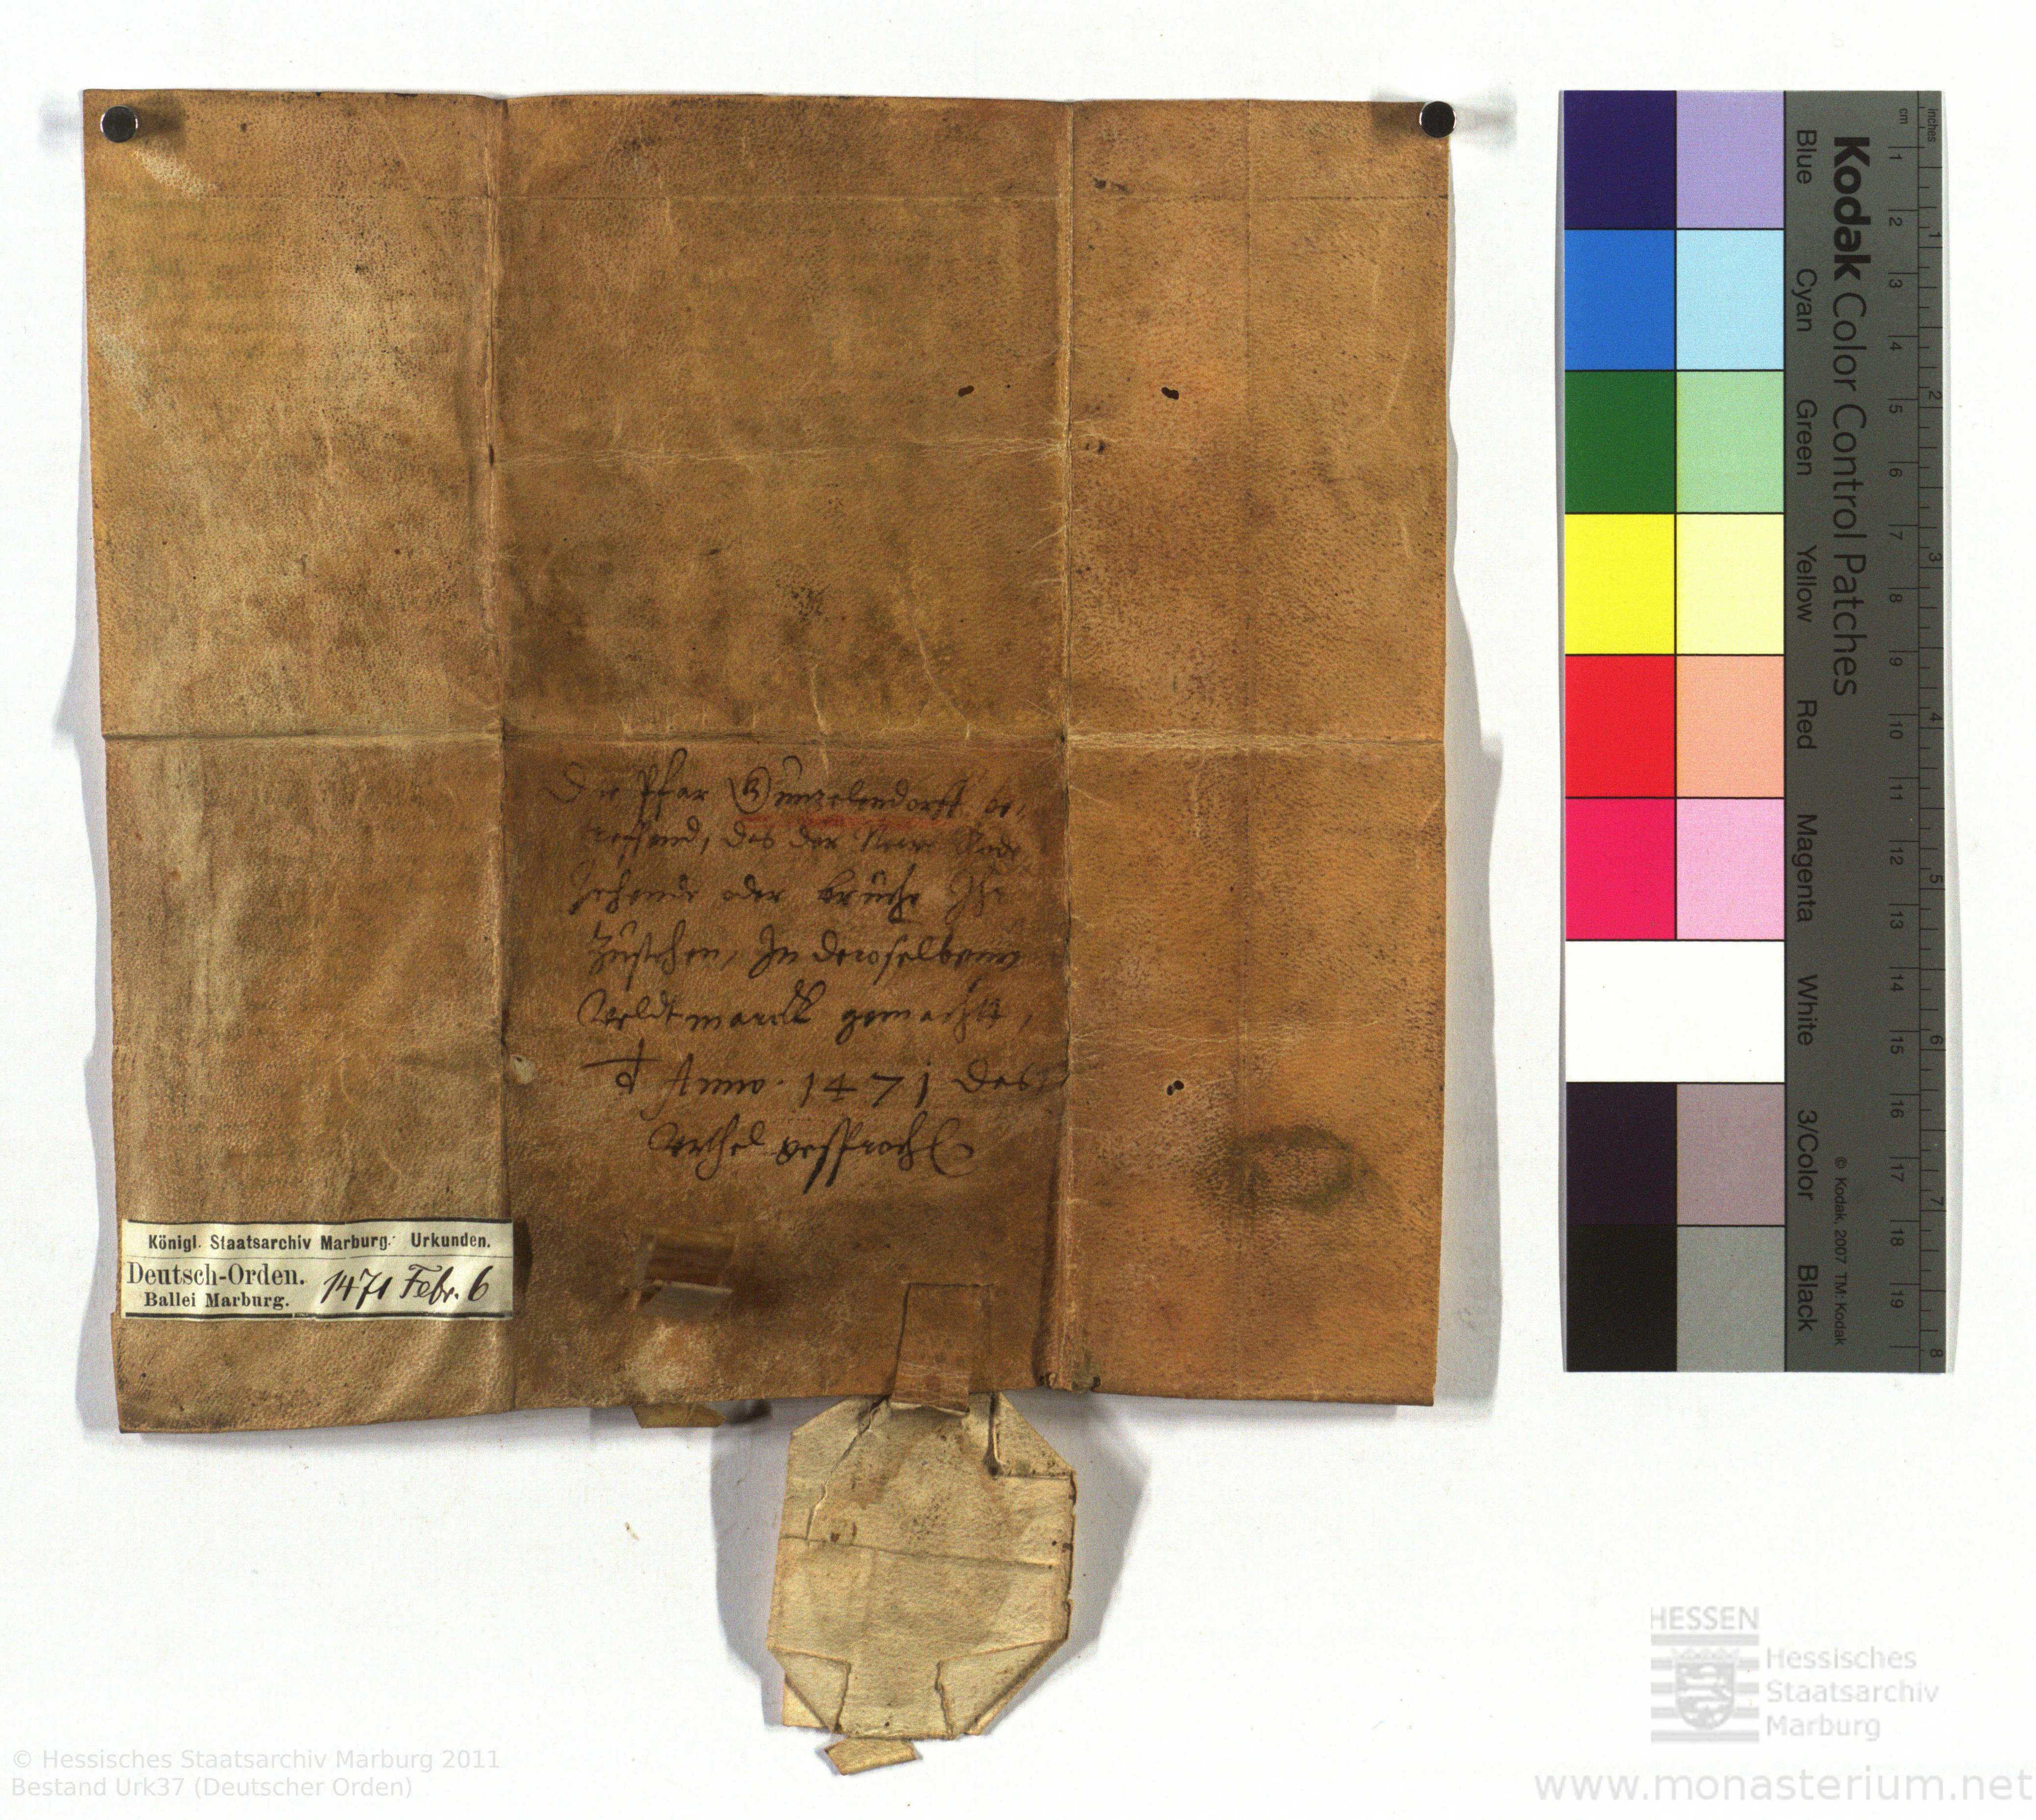 Die Pfar Güntzelendorff be,
treffend, das der Newe Rade
Zehende oder brüche Ihr
Zustehen, In derselbenn
Veldtmarck gemacht,
Anno 1471 das
Vrthel gesproch
Königl. Staatsarchiv Marburg. Urkunden.
Deutsch-Orden.
Ballei Marburg.
1471 Febr. 6
Kodak Color Control Patches
Blue Cyan Green Yellow Red Magenta White 3/Color Black
© Kodak, 2007 TM: Kodak
cm 1 2 3 4 5 6 7 8 9 10 11 12 13 14 15 16 17 18 19
inches 1 2 3 4 5 6 7 8
HESSEN
Hessisches
Staatsarchiv
Marburg
© Hessisches Staatsarchiv Marburg 2011
Bestand Urk37 (Deutscher Orden)
www.monasterium.net